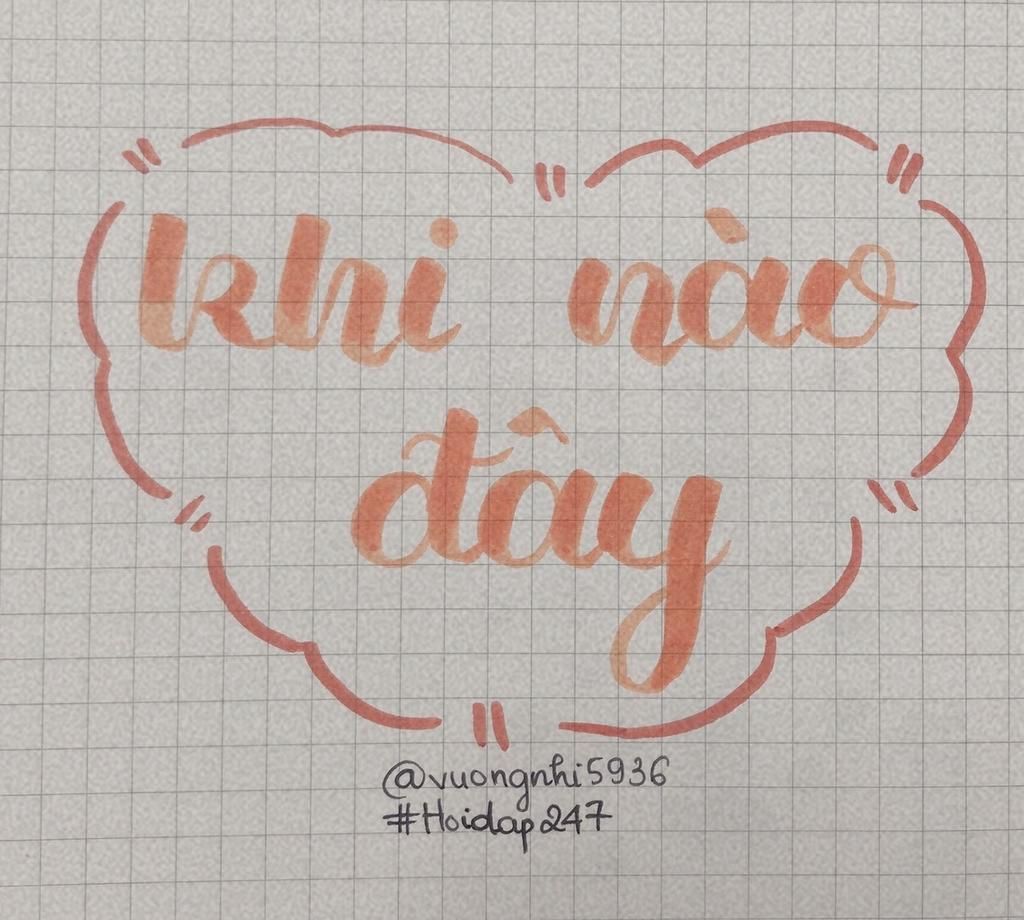 khi nào
đây
@vuongnhi5936
#Hoidap247